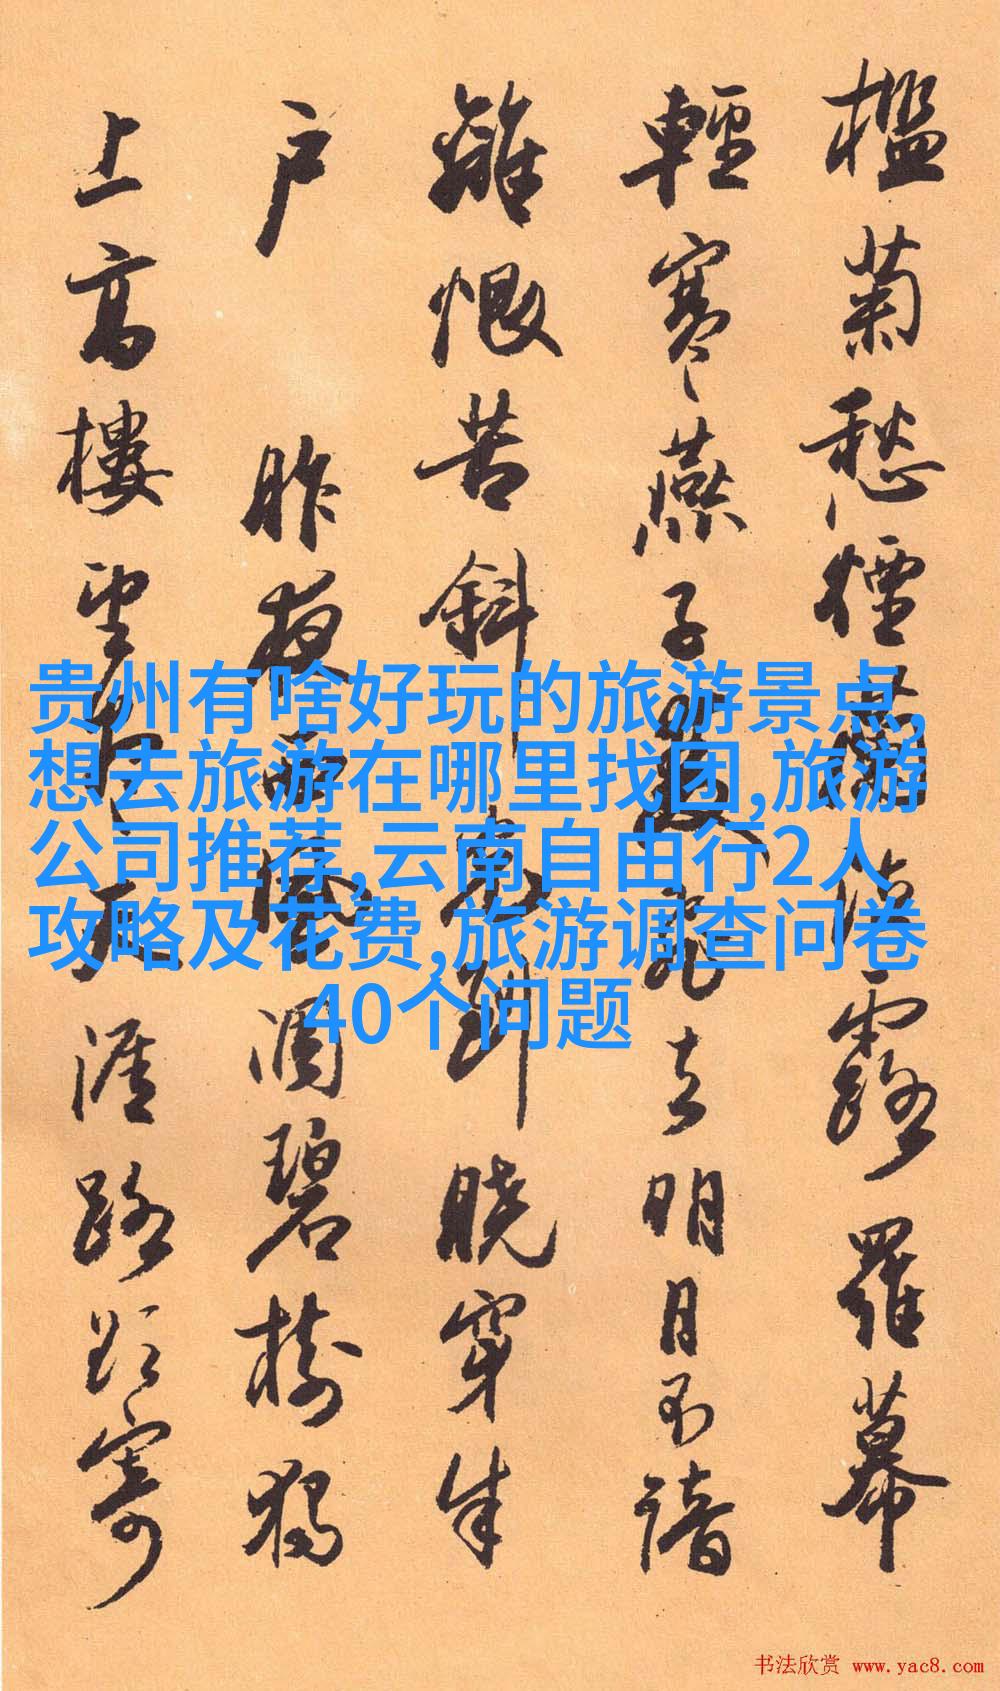 檻菊愁煙蘭泣露羅幕
輕寒燕子雙飛去明月不諳
離恨苦斜光到曉穿朱
户 昨夜西風凋碧樹獨
上高樓望尽天涯路欲寄
贵州有啥好玩的旅游景点,
想去旅游在哪里找团,旅游
公司推荐,云南自由行2人
攻略及花费,旅游调查问卷
40个问题
书法欣赏 www.yac8.com